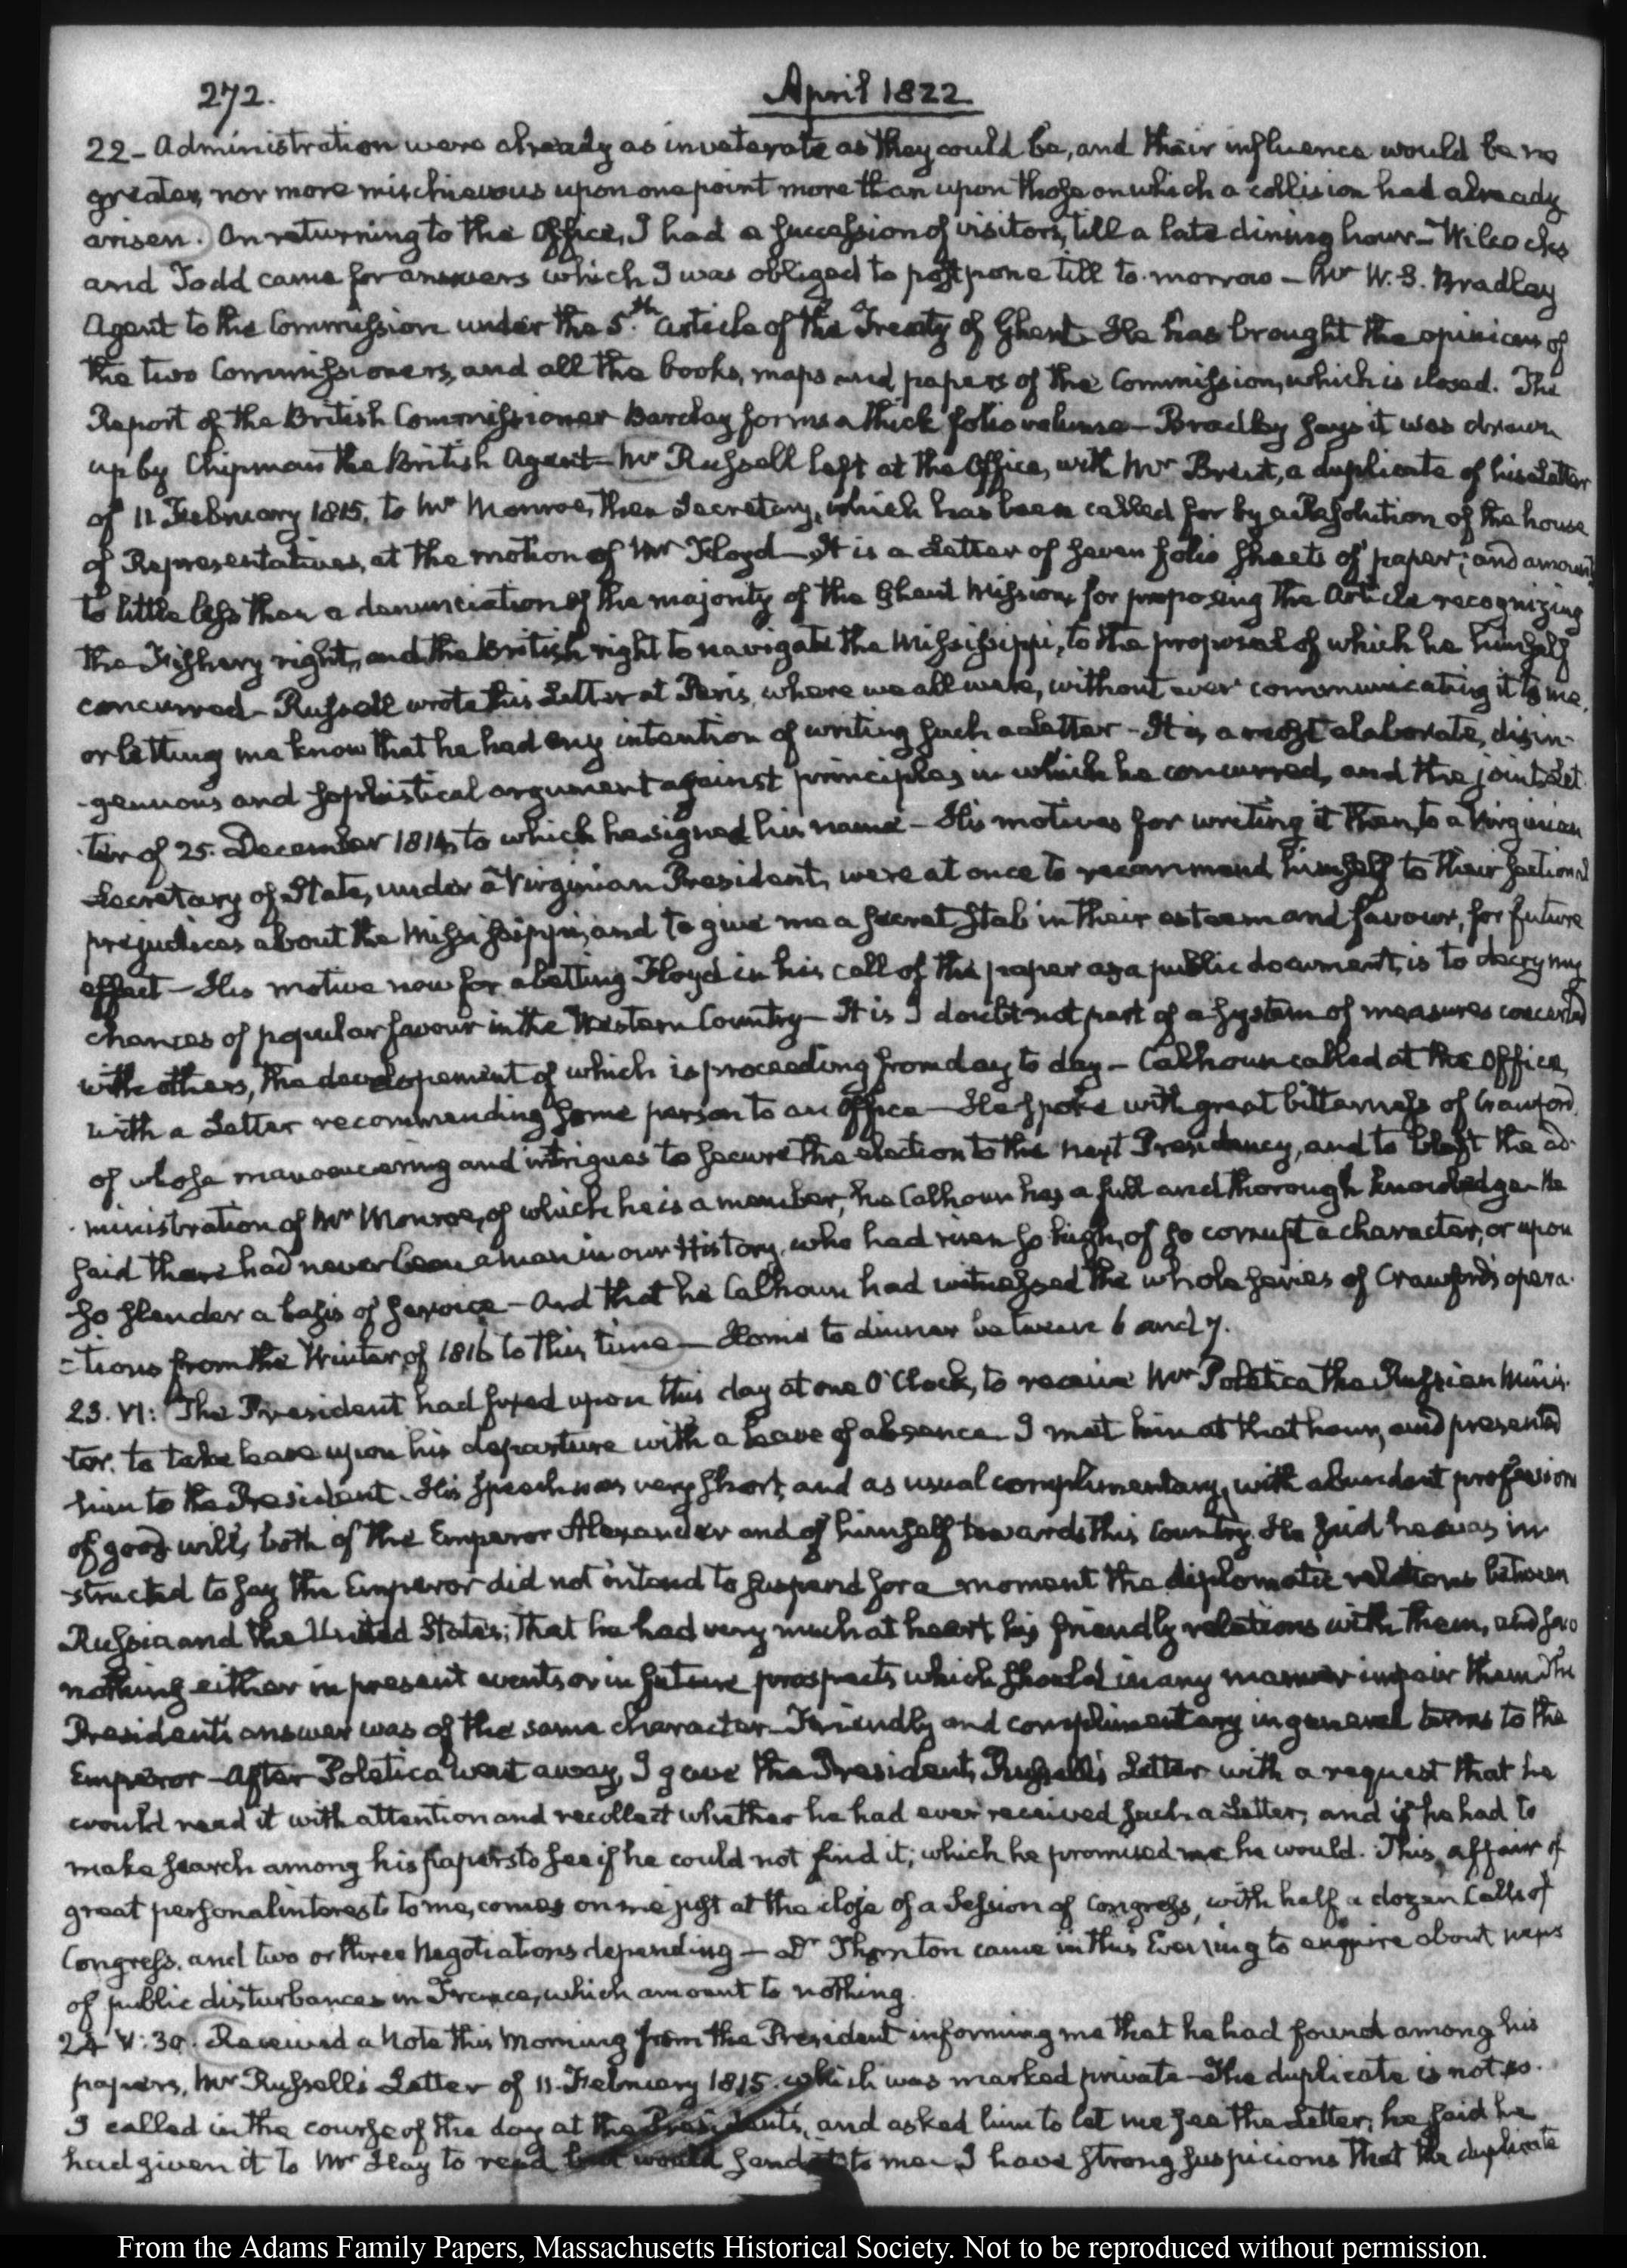 272.
April 1822
22 - Administration were already as inveterate as they could be, and their influence would be no
greater, nor more mischievous upon one point more than upon those on which a collision had already
arisen. On returning to the Office, I had a succession of visitors, till a late dining hour - Wilcocks
and Todd came for answers which I was obliged to postpone till to-morrow - Mr W. B. Bradley
Agent to the Commission under the 5.th Article of the Treaty of Ghent. He has brought the opinions of
the two Commissioners, and all the books, maps and papers of the Commission, which is closed. The
Report of the British Commissioner Barclay forms a thick folio volume - Bradley says it was drawn
up by Chipman the British Agent - Mr Russell left at the Office, with Mr Brent, a duplicate of his Letter
of 11 February 1815. to Mr Monroe, then Secretary, which has been called for by a Resolution of the house
of Representatives, at the motion of Mr Floyd - It is a Letter of seven folio sheets of paper; and amounts
to little less than a denunciation of the majority of the Ghent Mission for proposing the Article recognizing
the Fishery right, and the British right to navigate the Mississippi, to the proposal of which he himself
concurred - Russell wrote this Letter at Paris, where we all were, without ever communicating it to me,
or letting me know that he had any intention of writing such a Letter - It is a most elaborate, disin-
-genuous and sophistical argument against principles in which he concurred, and the joint Let-
-ter of 25. December 1814, to which he signed his name - His motives for writing it then, to a Virginian
Secretary of State, under a Virginian President, were at once to recommend himself to their sectional
prejudices about the Mississippi, and to give me a secret stab in their esteem and favour, for future
effect - His motive now for abetting Floyd in his call of the paper as a public document, is to decry my
chances of popular favour in the Western Country - It is I doubt not part of a system of measures concerted
with others, the developement of which is proceeding from day to day - Calhoun called at the Office,
with a Letter recommending some person to an Office - He spoke with great bitterness of Crawford
of whose manoeuvering and intrigues to secure the election to the next Presidency, and to blast the ad-
-ministration of Mr Monroe, of which he is a member, he Calhoun has a full and thorough knowledge - He
said there had never been a man in our History, who had risen so high, of so corrupt a character, or upon
so slender a basis of service - And that he Calhoun had witnessed the whole series of Crawford's opera-
-tions from the Winter of 1816 to this time - Home to dinner between 6 and 7.
23. VI: The President had fixed upon this day at one O'Clock, to receive Mr Poletica the Russian Minis-
ter. to take leave upon his departure with a leave of absence. I met him at that hour, and presented
him to the President. His speech was very short, and as usual complimentary, with abundant professions
of good will, both of the Emperor Alexander and of himself towards this Country. He said he was in-
-structed to say the Emperor did not intend to suspend for a moment the diplomatic relations between
Russia and the United States; that he had very much at heart his friendly relations with them, and saw
nothing either in present events or in future prospects which should in any manner impair them. The
President's answer was of the same character - Friendly and complimentary in general terms to the
Emperor - After Poletica went away, I gave the President, Russell's Letter with a request that he
would read it with attention and recollect whether he had ever received such a Letter; and if he had to
make search among his papers to see if he could not find it; which he promised me he would. This affair of
great personal interest to me, comes on me just at the close of a Session of Congress, with half a dozen Calls of
Congress, and two or three Negotiations depending - Dr Thornton came in this Evening to enquire about news
of public disturbances in France, which amount to nothing.
24 V: 30. Received a Note this Morning from the President informing me that he had found among his
papers, Mr Russell's Letter of 11. February 1815. which was marked private - The duplicate is not so.
I called in the course of the day at the President's, and asked him to let me see the Letter; he said he
had given it to Mr Hay to read but would send it to me - I have strong suspicions that the duplicate
From the Adams Family Papers, Massachusetts Historical Society. Not to be reproduced without permission.